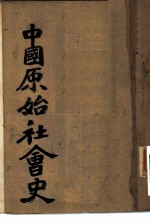 中國原始社會史